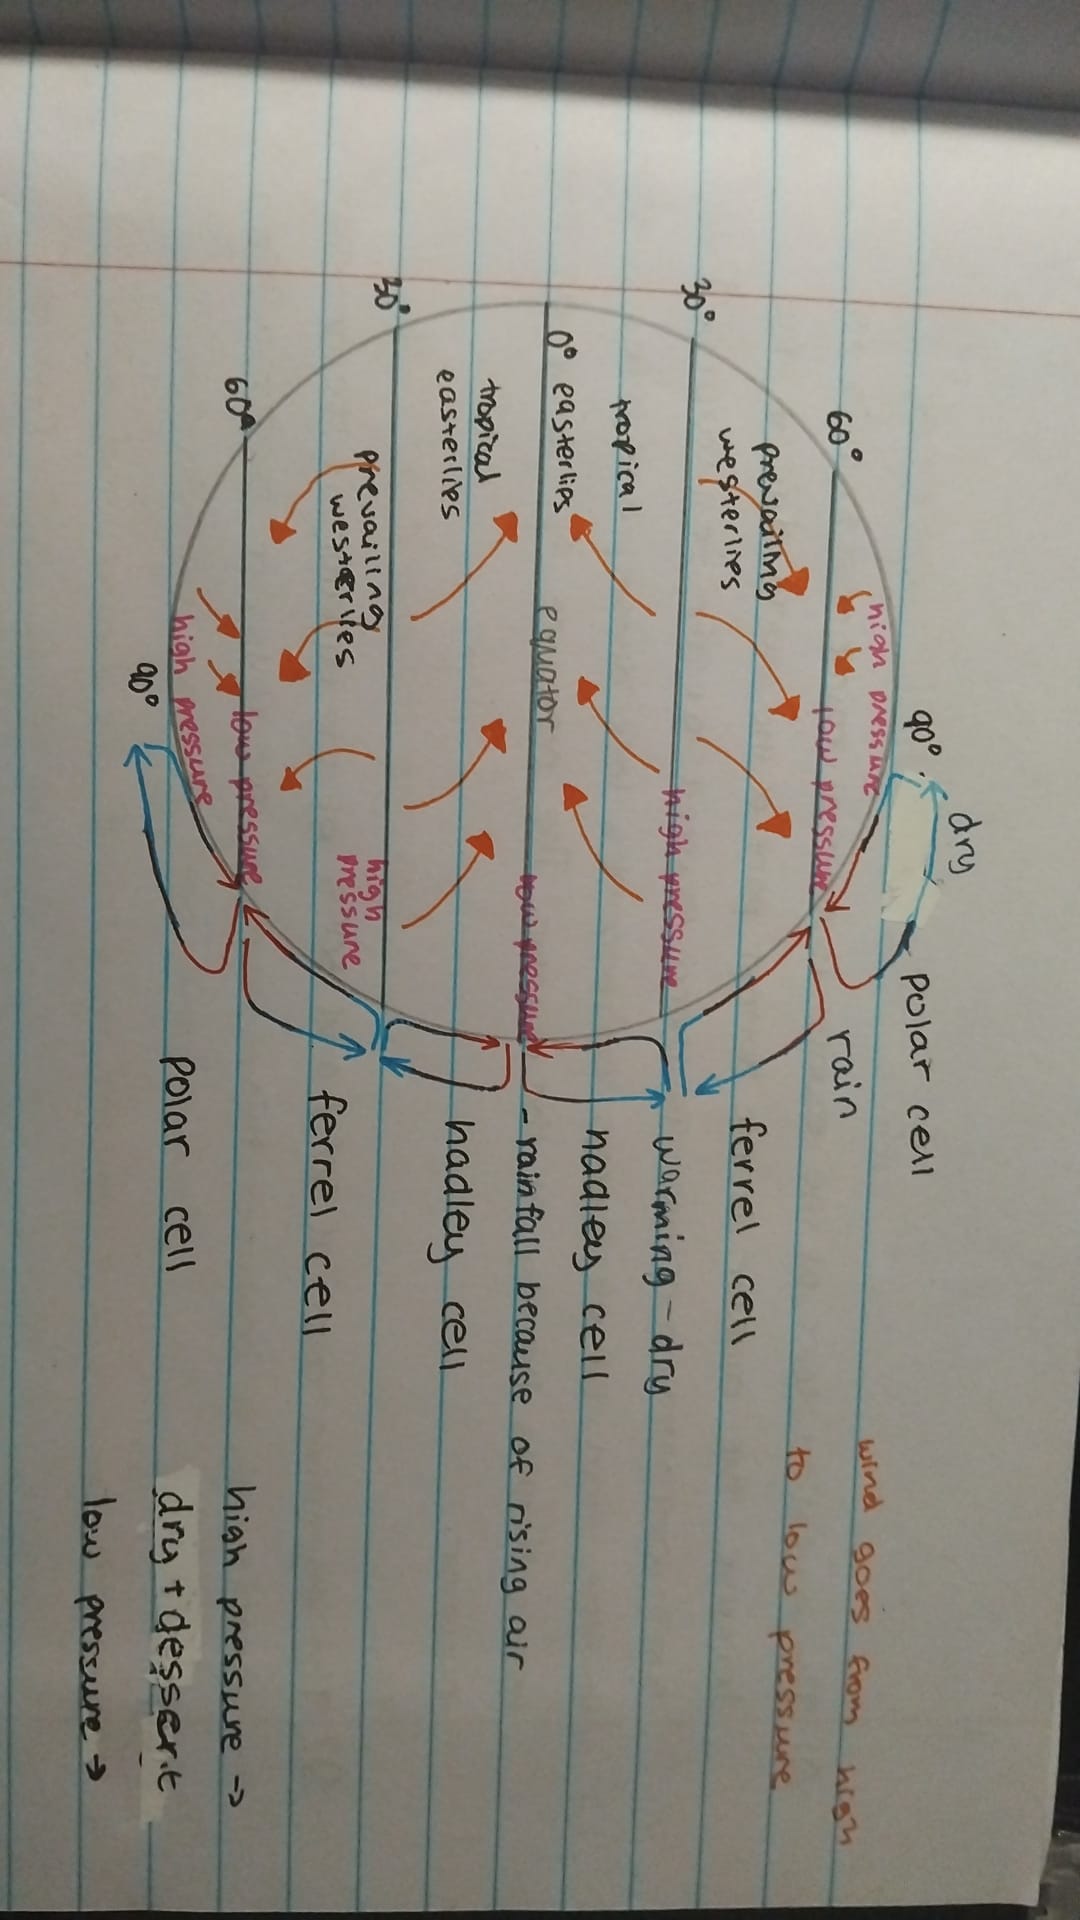 90°
dry
high pressure
polar cell
60°
low pressure
rain
wind goes from high
to low pressure
prevailing
westerlies
ferrel cell
30°
high pressure
warming - dry
tropical
easterlies
hadley cell
0°
equator
low pressure
- rainfall because of rising air
tropical
easterlies
hadley cell
30°
high
pressure
prevailling
westerlies
ferrel cell
60°
low pressure
high pressure
90°
polar cell
high pressure →
dry + dessert
low pressure →